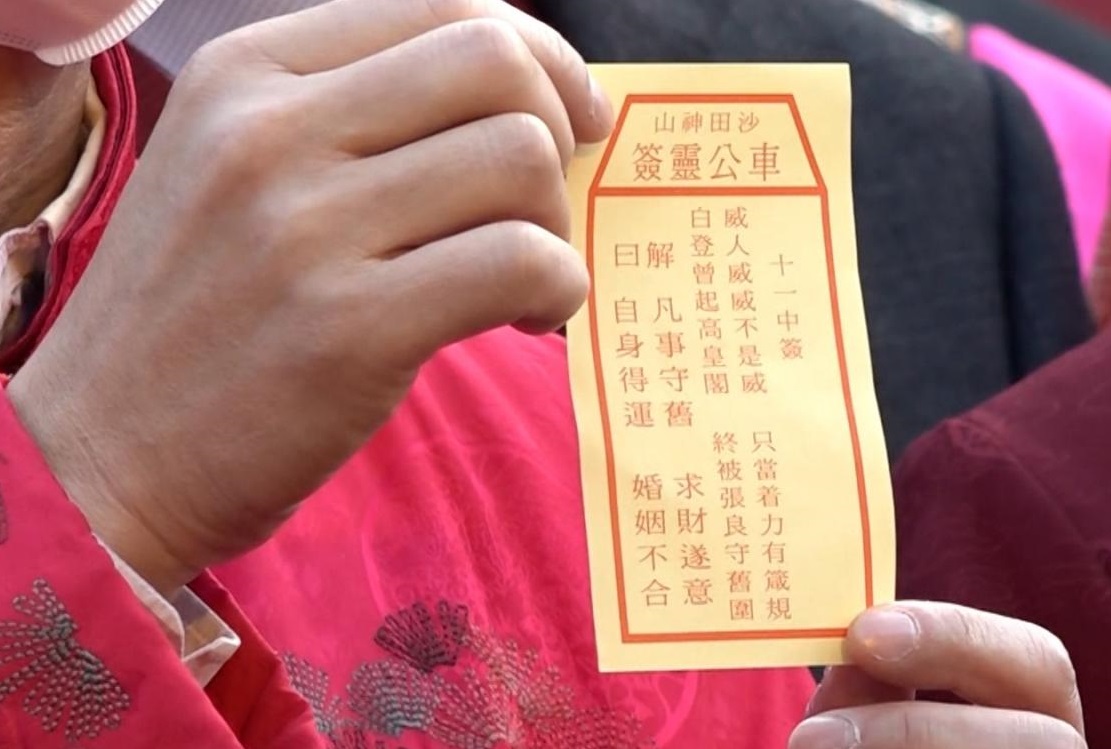 沙田神山
車公靈簽
十一中簽
威人威威不是威 只當着力有箴規
白登曾起高皇閣 終被張良守舊圍
解 凡事守舊 求財遂意
曰 自身得運 婚姻不合